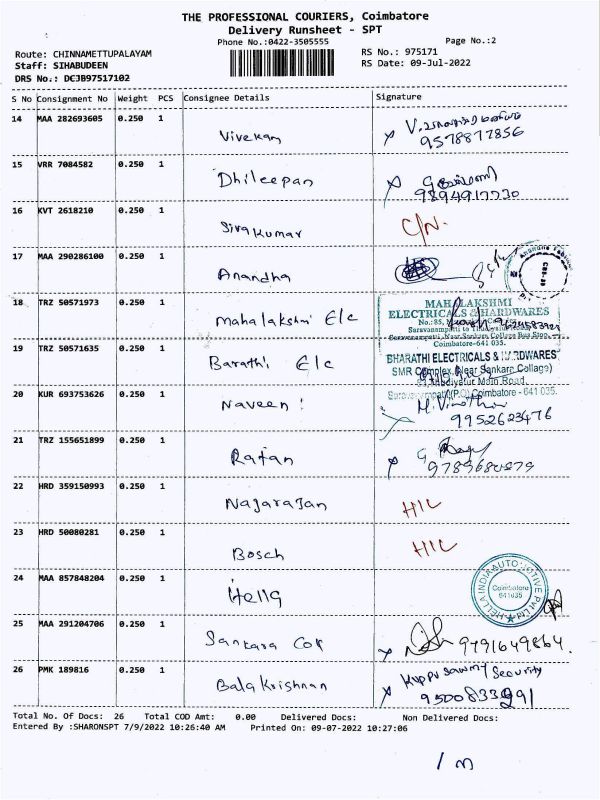 THE PROFESSIONAL COURIERS, Coimbatore
Delivery Runsheet - SPT
Phone No.:0422-3505555
Page No.:2
Route: CHINNAMETTUPALAYAM
RS No.: 975171
Staff: SIHABUDEEN
RS Date: 09-Jul-2022
DRS No.: DCJB97517102
S No Consignment No Weight PCS Consignee Details Signature
14 MAA 282693605 0.250 1 Vivekan 9578877856
15 VRR 7084582 0.250 1 Dhileepan 9894917730
16 KVT 2618210 0.250 1 Sivakumar C/N.
17 MAA 290286100 0.250 1 Anandha
18 TRZ 50571973 0.250 1 Mahalakshmi E/c
MAHALAKSHMI
ELECTRICALS & HARDWARES
No.:85,
Saravanampatti, Near Sankara College Bus Stop,
Coimbatore-641 035.
19 TRZ 50571635 0.250 1 Barathi E/c
BHARATHI ELECTRICALS & HARDWARES
SMR Complex, Near Sankara College)
Main Road,
(P.O) Coimbatore - 641 035.
20 KUR 693753626 0.250 1 Naveen M. Vinothini 9952623476
21 TRZ 155651899 0.250 1 Rajan 9789680879
22 HRD 359150993 0.250 1 Nagarajan H/L
23 HRD 50080281 0.250 1 Bosch H/L
24 MAA 857848204 0.250 1 Hella
HELLA INDIA AUTOMOTIVE PVT LTD
Coimbatore
641035
25 MAA 291204706 0.250 1 Sankara Col 9791649864.
26 PMK 189816 0.250 1 Balakrishnan Kuppusawmy Security
9500833991
Total No. Of Docs: 26 Total COD Amt: 0.00 Delivered Docs: Non Delivered Docs:
Entered By :SHARONSPT 7/9/2022 10:26:40 AM Printed On: 09-07-2022 10:27:06